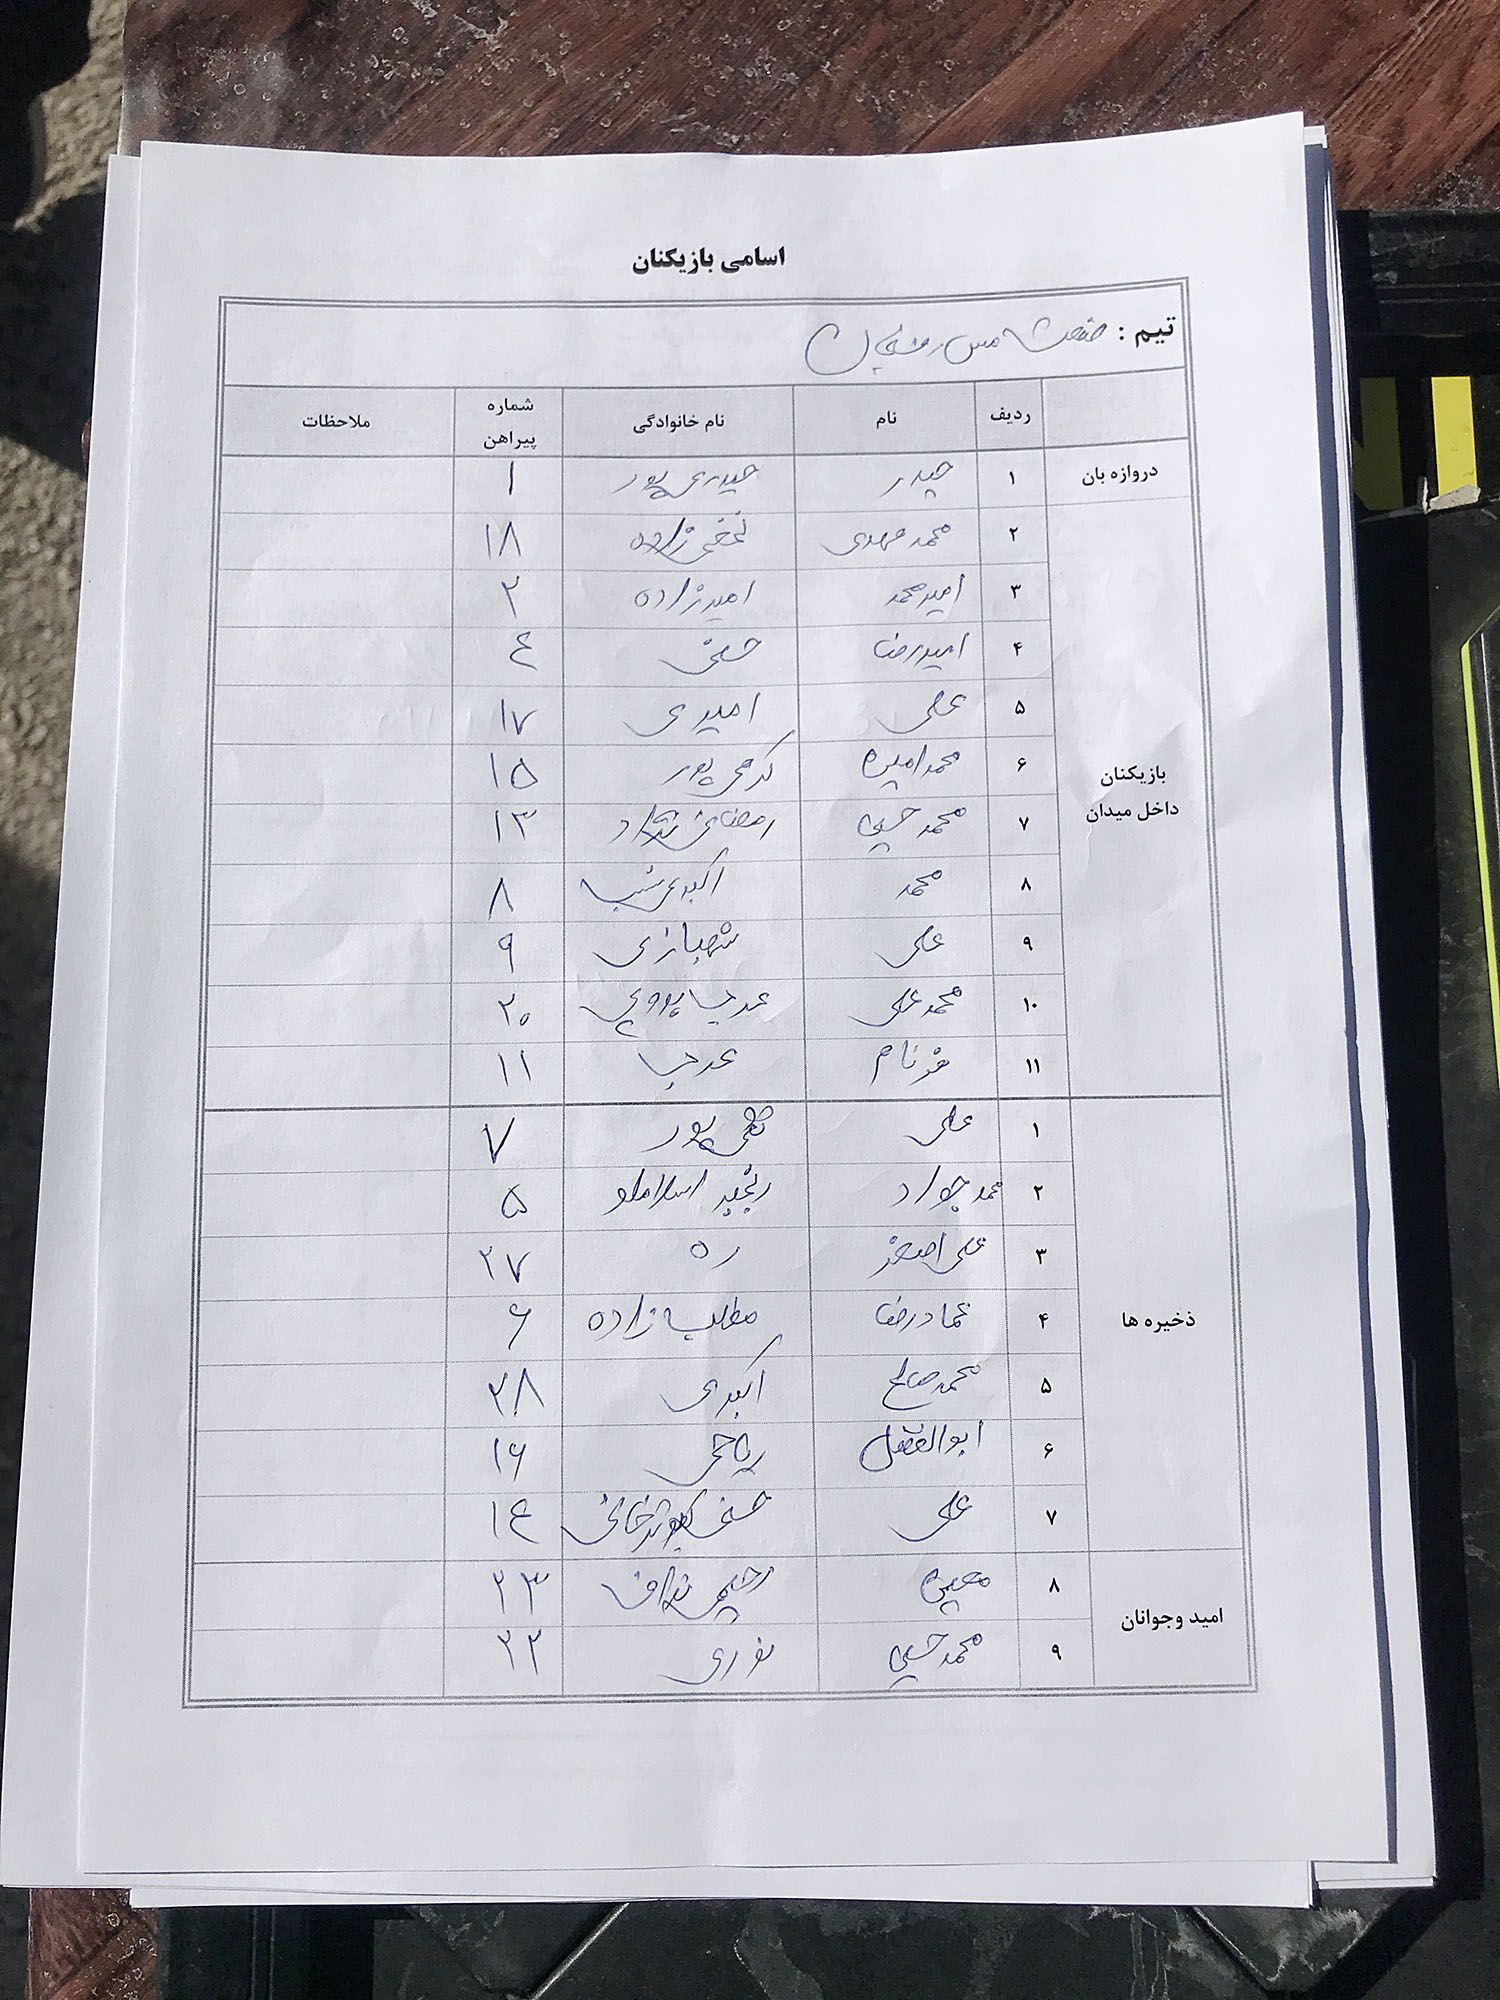 اسامی بازیکنان
تیم : صنعت مس رفسنجان
ردیف نام نام خانوادگی شماره پیراهن ملاحظات
دروازه بان ۱ حیدر حیدری پور ۱
بازیکنان داخل میدان
۲ محمد مهدی نجفی زاده ۱۸
۳ امیرمحمد امیرزاده ۲
۴ امیررضا حسنی ۴
۵ علی امیری ۱۷
۶ محمدامین کرمی پور ۱۵
۷ محمدحسین رمضانی نژاد ۱۳
۸ محمد اکبری نسب ۸
۹ علی شهبازی ۹
۱۰ محمدعلی ۲۰
۱۱ فرنام ۱۱
ذخیره ها
۱ علی پور ۷
۲ محمدجواد رنجبر اسلاملو ۵
۳ علی اصغر ره ۲۷
۴ عمادرضا مطلب زاده ۶
۵ محمدصالح اکبری ۲۸
۶ ابوالفضل ریاحی ۱۶
۷ علی حسنی کبوترخانی ۱۴
امید وجوانان
۸ معین رحیمی نداف ۲۳
۹ محمدحسین نوری ۲۲